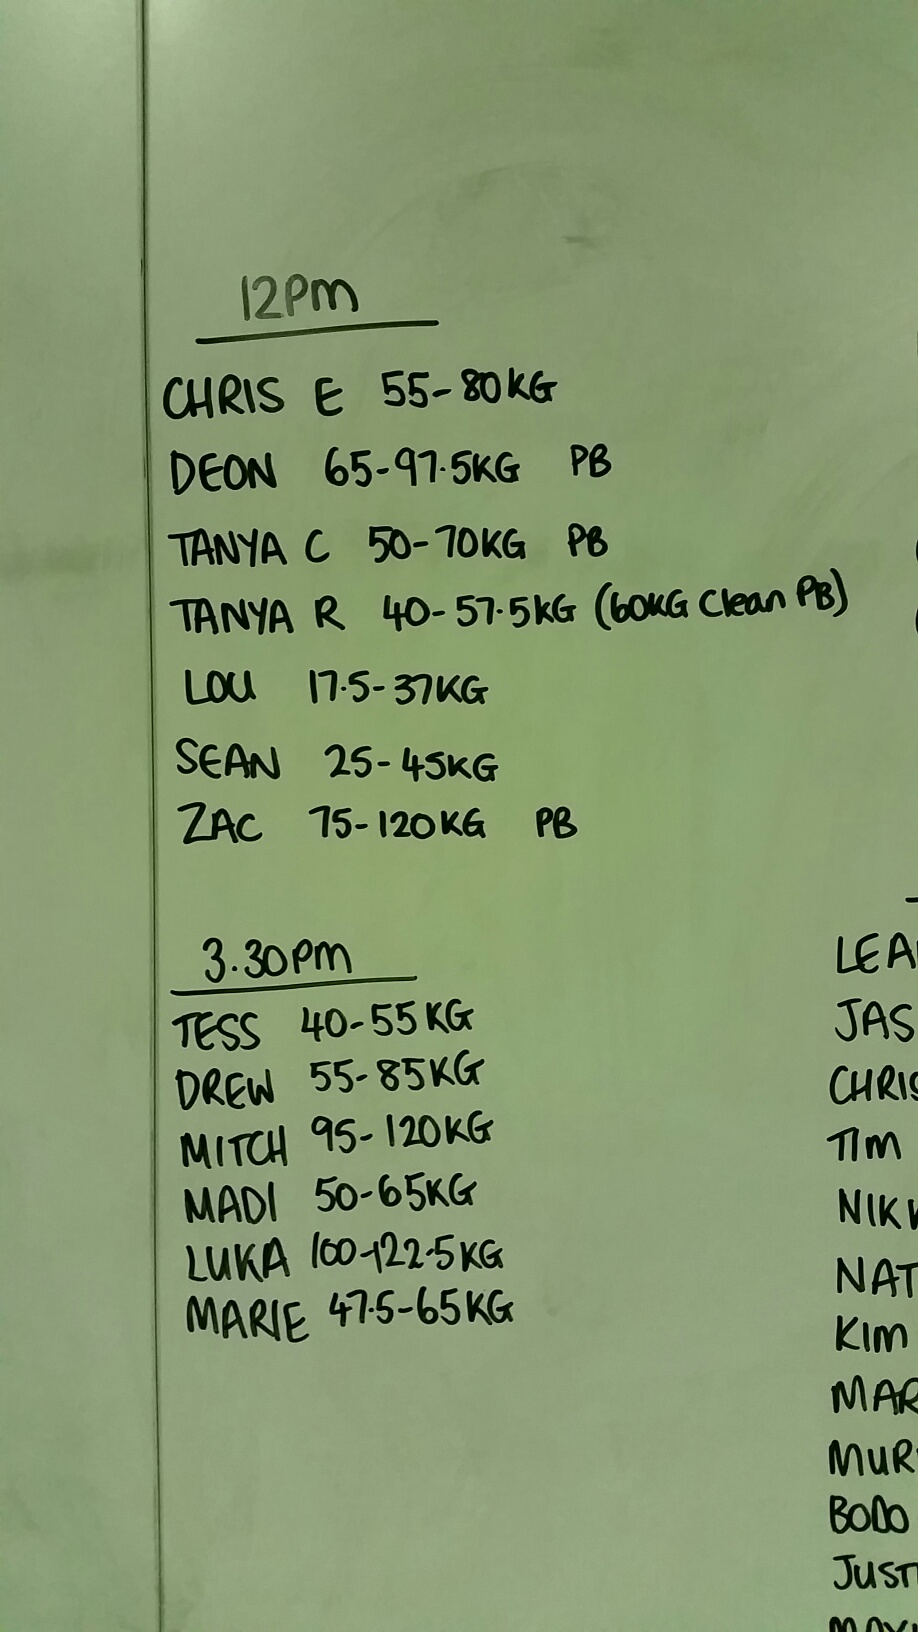 12PM
CHRIS E 55-80KG
DEON 65-97.5KG PB
TANYA C 50-70KG PB
TANYA R 40-57.5KG (60KG Clean PB)
LOU 17.5-37KG
SEAN 25-45KG
ZAC 75-120KG PB
3.30PM
TESS 40-55KG
DREW 55-85KG
MITCH 95-120KG
MADI 50-65KG
LUKA 100-122.5KG
MARIE 47.5-65KG
LEA
JAS
CHRIS
TIM
NIK
NAT
KIM
MAR
MUR
BODO
JUST